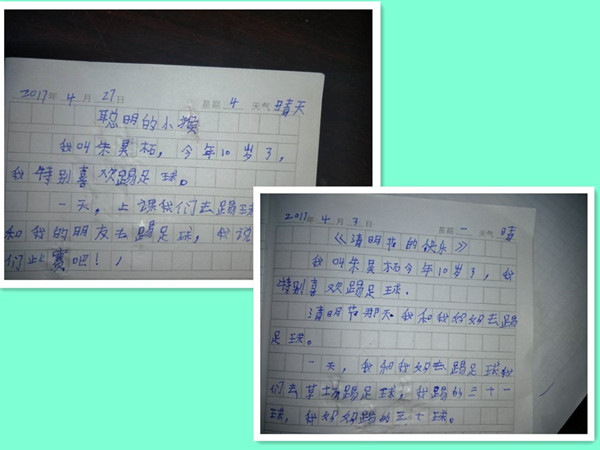 2017年 4 月 27日 星期 4 天气 晴天
聪明的小猴
我叫朱昊柘，今年10岁了，
我特别喜欢踢足球。
一天，上课我们去踢球
和我的朋友去踢足球，我说
们比赛吧！
2017年 4 月 3 日 星期 一 天气 晴
《清明节的快乐》
我叫朱昊柘今年10岁了，我
特别喜欢踢足球．
清明节那天．我和我妈妈去踢
足球。
一天，我和我妈去踢足球我
们去草场踢足球，我踢的三十一
球，我妈妈踢的三十球。